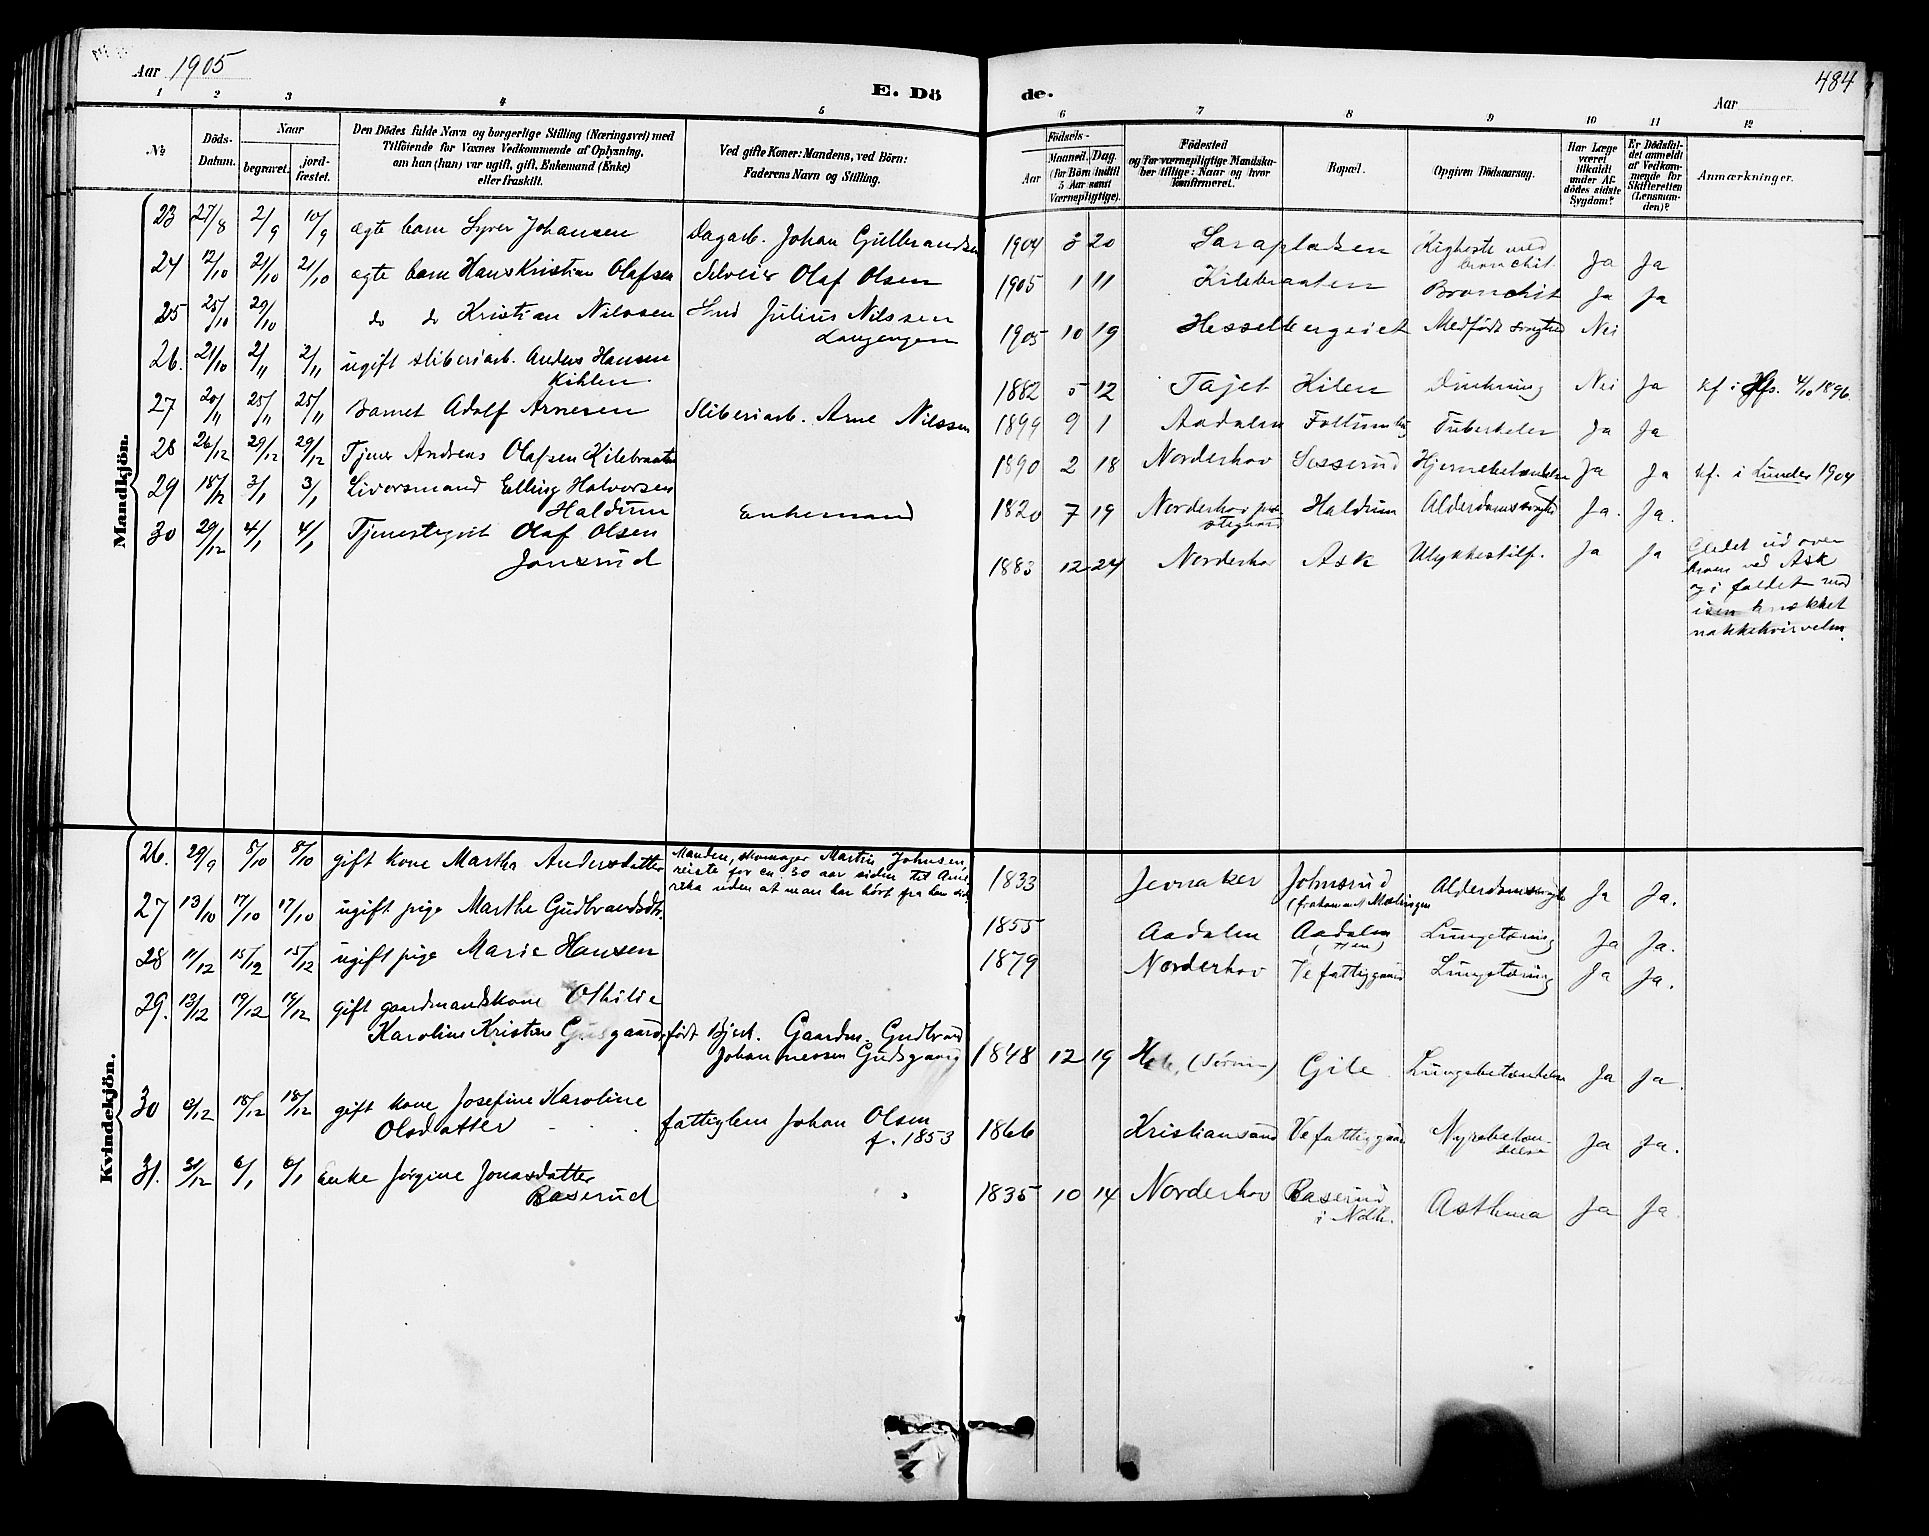 Aar 1905
E. Döde.
Aar
484
1 2 3 4 5 6 7 8 9 10 11 12
No
Döds-Datum.
Naar
begravet.
jord-fæstet.
Den Dödes fulde Navn og borgerlige Stilling (Næringsvei) med
Tilföiende for Voxnes Vedkommende af Oplysning,
om han (hun) var ugift, gift, Enkemand (Enke)
eller fraskilt.
Ved gifte Koner: Mandens, ved Börn:
Faderens Navn og Stilling.
Födsels-
Aar
Maaned. Dag.
(for Börn indtil
5 Aar samt
Værnepligtige).
Födested
og for værnepligtige Mandska-
ber tillige: Naar og hvor
konfirmeret.
Bopæl.
Opgiven Dödsaarsag.
Har Læge
været
tilkaldt
under Af-
dödes sidste
Sygdom?
Er Dödsfal-
det anmeldt
af Vedkom-
mende for
Skifteretten
(Lensman-
den)?
Anmærkninger.
Mandkjön.
23 27/8 2/9 10/9 ægte barn Syver Johansen Dagarb. Johan Gulbrandsen 1904 3 20 Sarapladsen Kighoste med
bronchit. Ja Ja
24 12/10 21/10 21/10 ægte barn Hans Kristian Olafsen Selveier Olaf Olsen 1905 1 11 Kilebraaten Bronchit Ja Ja
25 25/10 29/10 do do Kristian Nilssen Smed Julius Nilssen
1905 10 19 Hesselbergeiet Medfødt svaghed Nei
26. 21/10 2/11 2/11 ugift sliberiarb. Anders Hansen
Kihlen. 1882 5 12 Tajet Kilen Drukning Nei Ja kf i Hfs. 4/10 1896.
27 20/11 25/11 25/11 Barnet Adolf Arnesen Sliberiarb. Arne Nilssen 1899 9 1 Aadalen Follum Tuberkeler Ja Ja
28 26/12 29/12 29/12 Tjener Andreas Olafsen Kilebraaten 1890 2 18 Norderhov Sesserud Hjernebetændelse Ja Ja kf. i Lunder 1904
29 18/12 3/1 3/1 Livorsmand Elling Halvorsen
Haldum Enkemand 1820 7 19 Norderhov præ-
stegaard Haldum Alderdomssvaghed Ja. Ja.
30 29/12 4/1 4/1 Tjenestegut Olaf Olsen
Jonsrud 1883 12 24 Norderhov Ask Ulykkestilf. Ja Ja Gledet ud over
broen ved Ask
og i faldet mod
isen knækket
nakkehvirvelen.
Kvindekjön.
26. 29/9 8/10 8/10 gift kone Martha Andersdatter Manden, skomager Martin Johnsen,
reiste for en 30 aar siden til Ame-
rika uden at man har hørt fra ham sid. 1833 Jevnaker Johnsrud
Alderdomssvaghed Ja Ja.
27 13/10 17/10 17/10 ugift pige Marthe Gudbrandsdtr. 1855 Aadalen Aadalen
Lungetæring Ja Ja.
28 11/12 15/12 15/12 ugift pige Marie Hansen 1879 Norderhov Ve fattiggaard Lungetæring Ja Ja.
29. 13/12 19/12 19/12 gift gaardmandskone Othilie
Karoline Kristine Gusgaard, født Bjerk. Gaardm. Gudbrand
Johannessen Gudsgaard 1848 12 19 Hole Gile Lungebetændelse Ja Ja.
30 12/12 18/12 18/12 gift kone Josefine Karoline
Olsdatter fattiglem Johan Olsen
f. 1853 1866 Kristiansand Ve fattiggaard Nyrebetæn-
delse Ja Ja.
31. 31/12 6/1 6/1 Enke Jørgine Jonasdatter
Baserud 1835 10 14 Norderhov Baserud
i Ndh. Asthma Ja Ja.